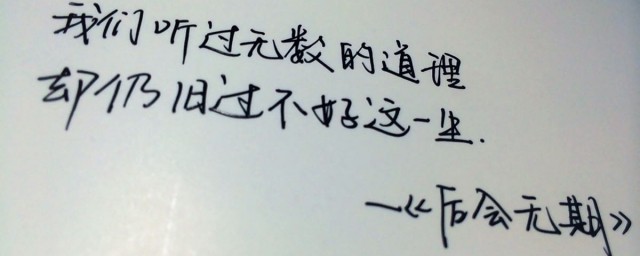 我们听过无数的道理
却仍旧过不好这一生.
—《后会无期》